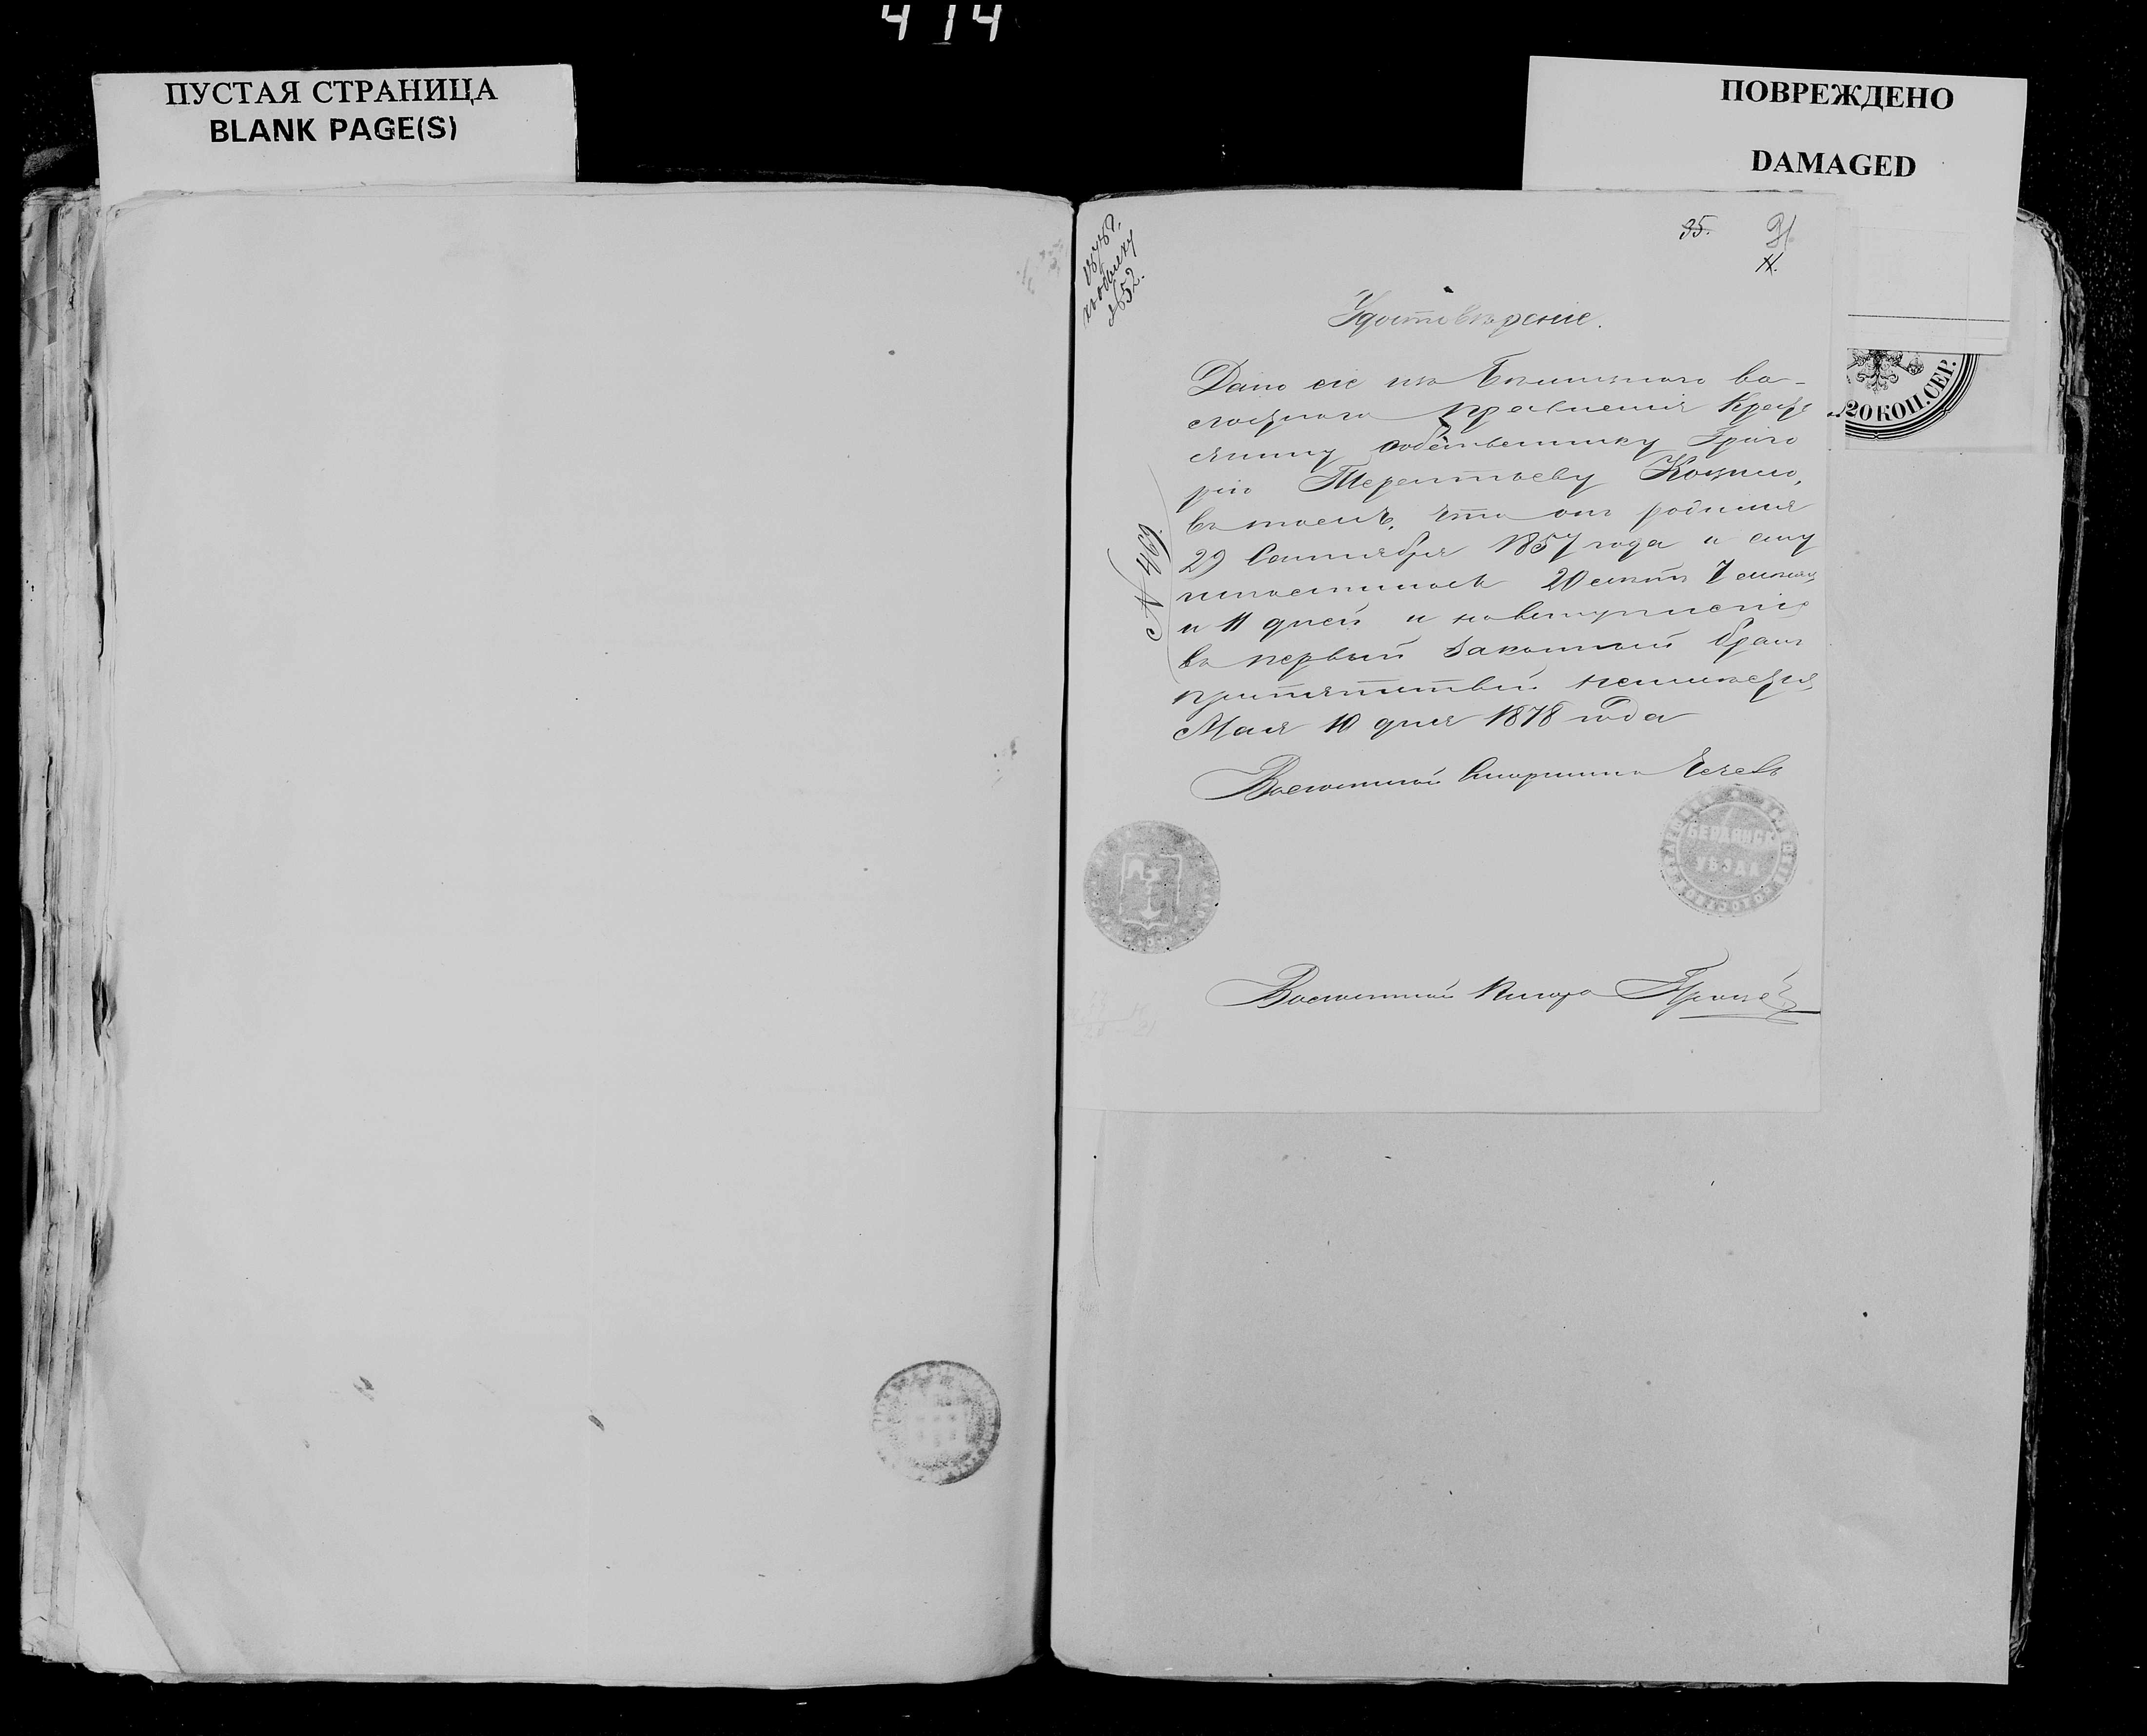 414
ПУСТАЯ СТРАНИЦА
BLANK PAGE(S)
ПОВРЕЖДЕНО
DAMAGED
1878 г.
къ обыску
№ 52.
35.
20 КОП. СЕР.
Удостовѣреніе.
Дано сіе изъ волос-
тнаго правленія Кресть
янину собственнику Григо
рію Терентьеву
въ томъ, что онъ родился
29 Сентября 1857 года и ему
исполнилось 20 лѣтъ 7 мѣсяц
и 11 дней и на вступленіе
въ первый законный бракъ
припятствій неимѣется,
Мая 10 дня 1878 года
№ 469
Волостной Старшина
БЕРДЯНСК
УѢЗДА
Волостной Писарь